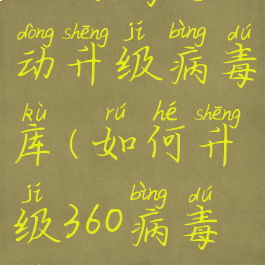 dòng shēng jí bìng dú
动升级病毒
kù rú hé shēng
库(如何升
jí bìng dú
级360病毒